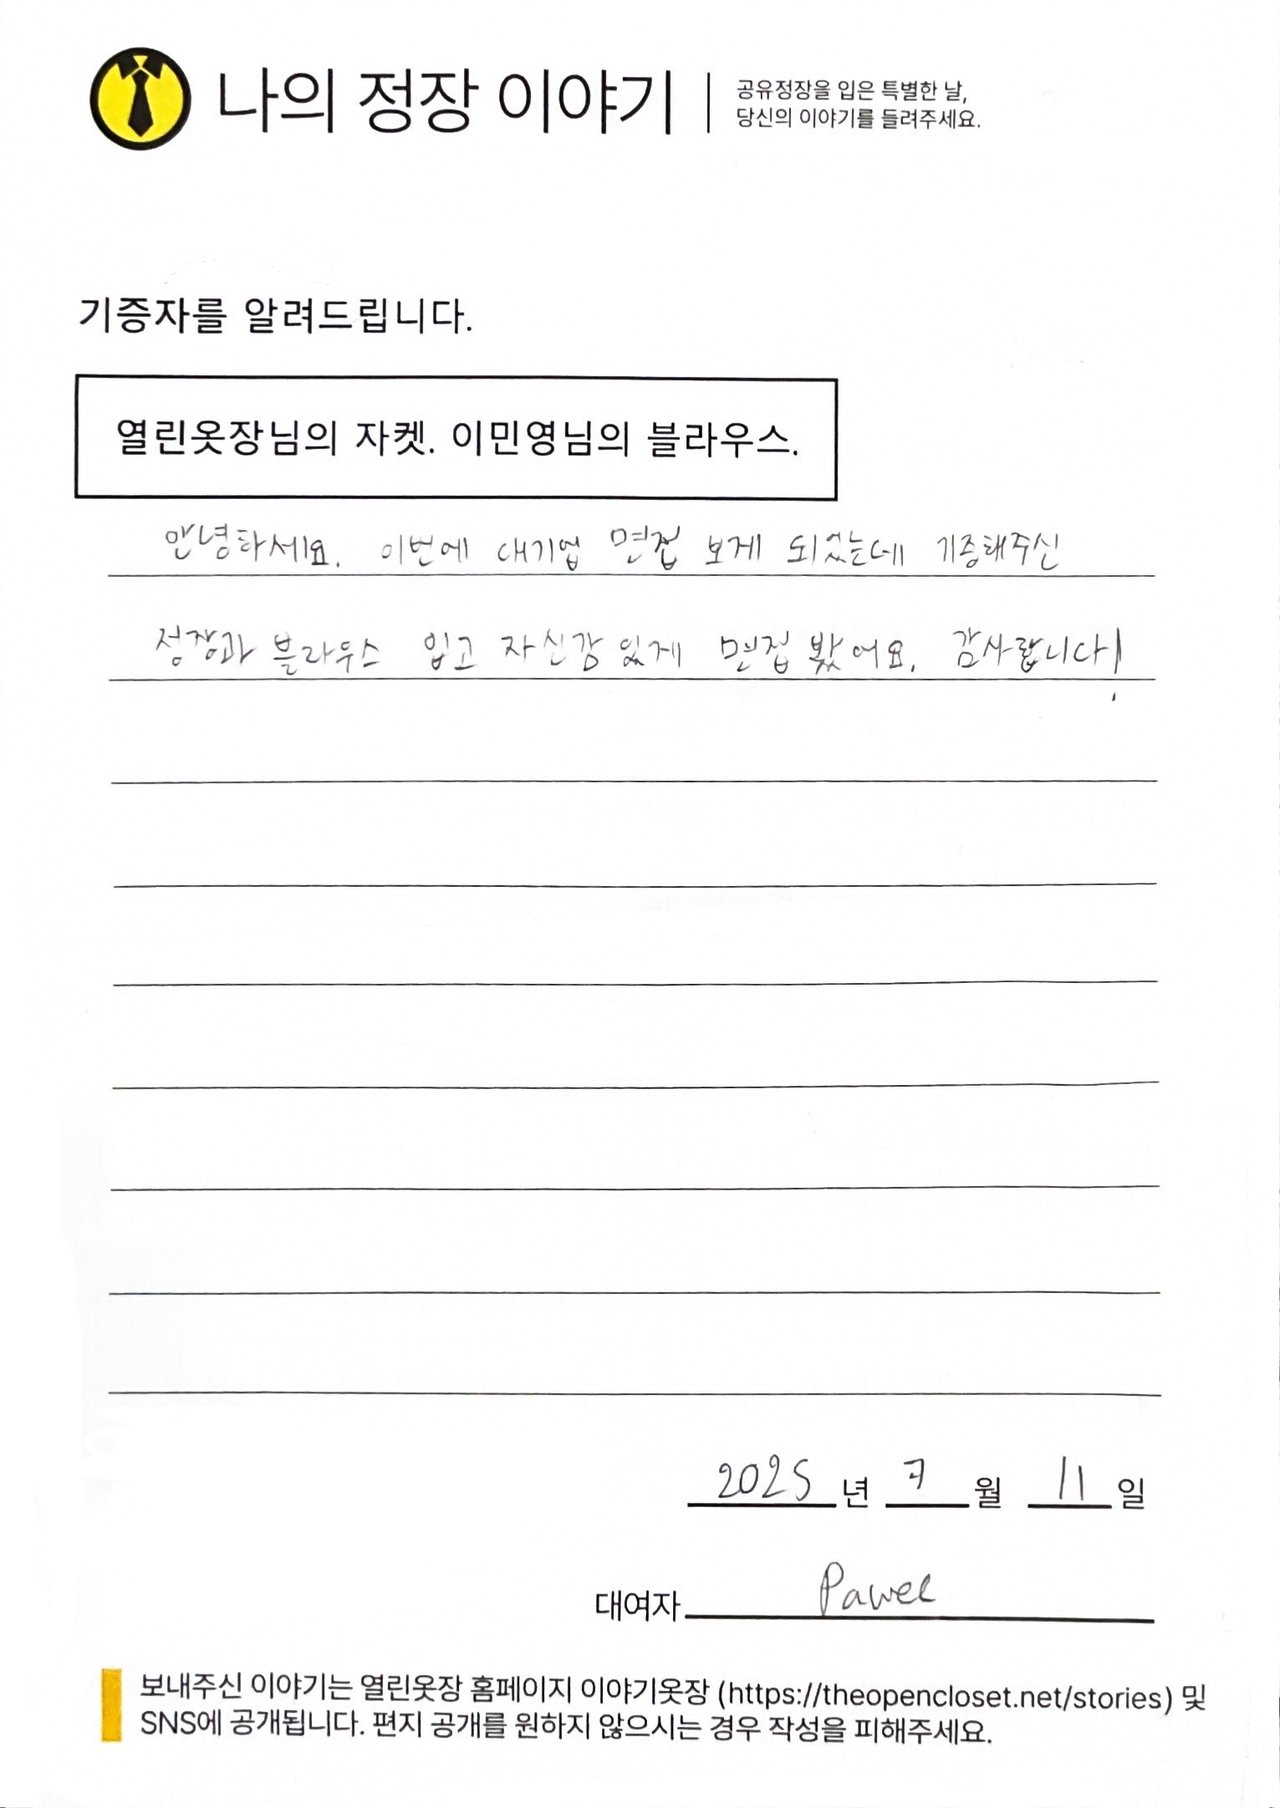 나의 정장 이야기
공유정장을 입은 특별한 날,
당신의 이야기를 들려주세요.
기증자를 알려드립니다.
열린옷장님의 자켓. 이민영님의 블라우스.
안녕하세요. 이번에 대기업 면접 보게 되었는데 기증해주신
정장과 블라우스 입고 자신감 있게 면접 봤어요. 감사랍니다!
2025 년 7 월 11 일
대여자 Pawel
보내주신 이야기는 열린옷장 홈페이지 이야기옷장 (https://theopencloset.net/stories) 및
SNS에 공개됩니다. 편지 공개를 원하지 않으시는 경우 작성을 피해주세요.